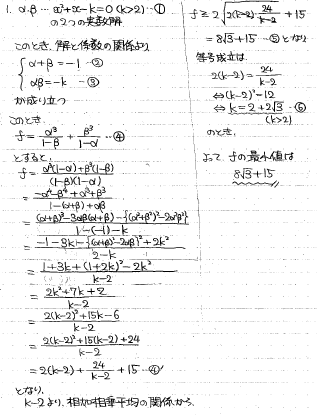 1. α,β … x²+x-k=0 (k>2)…①
の2つの実数解
このとき、解と係数の関係より
{ α+β=-1 …②
αβ=-k …③
が成り立つ
このとき
f = α³/(1-β) + β³/(1-α) …④
とすると、
f = (α³(1-α)+β³(1-β))/((1-β)(1-α))
= (-α⁴-β⁴+α³+β³)/(1-(α+β)+αβ)
= ((α+β)³-3αβ(α+β)-{(α²+β²)²-2α²β²})/(1-(-1)-k)
= (-1-3k-{(α+β)²-2αβ}²+2k²)/(2-k)
= (1+3k+(1+2k)²-2k²)/(k-2)
= (2k²+7k+2)/(k-2)
= (2(k-2)²+15k-6)/(k-2)
= (2(k-2)²+15(k-2)+24)/(k-2)
= 2(k-2)+24/(k-2)+15 …④'
となり、
k>2より、相加相乗平均の関係から、
f ≧ 2√(2(k-2)・24/(k-2)) +15
= 8√3+15 …⑤となり
等号成立は
2(k-2)=24/(k-2)
⇔(k-2)²=12
⇔k=2+2√3 …⑥
(k>2)
のとき。
よって fの最小値は
8√3+15